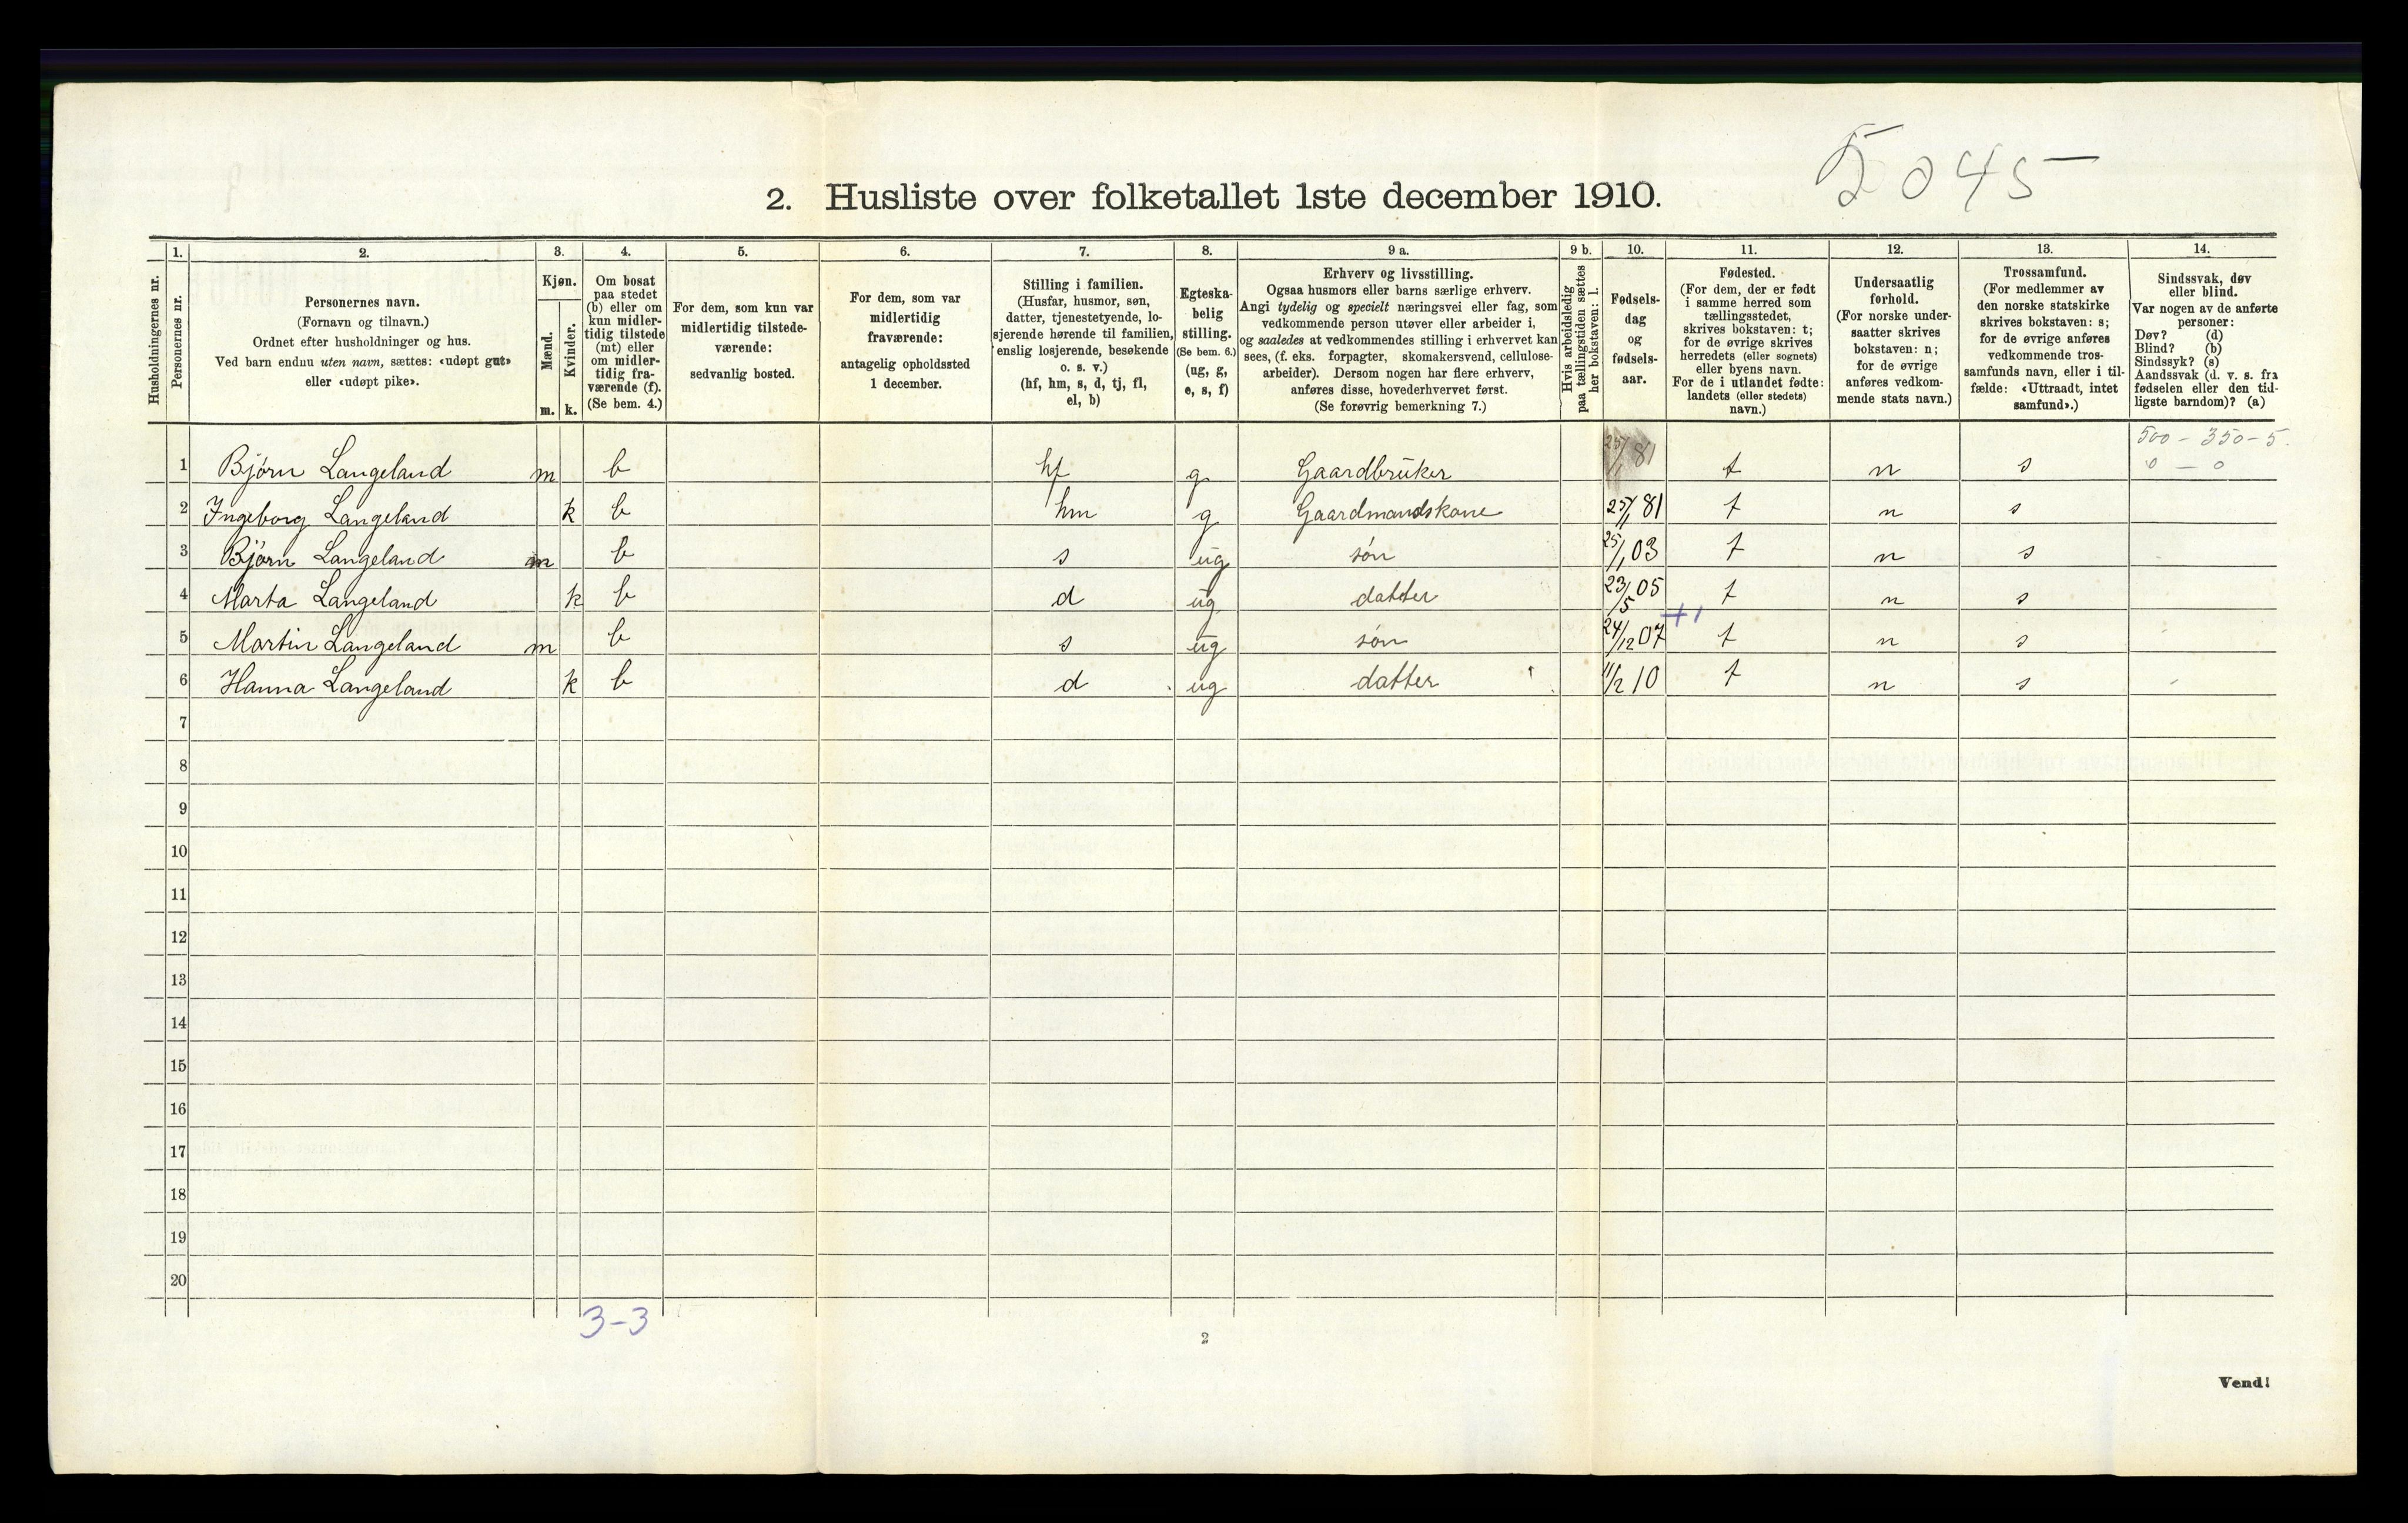 5045
2. Husliste over folketallet 1ste december 1910.
Husholdningernes nr.
1.
Personernes nr.
2.
Personernes navn.
(Fornavn og tilnavn.)
Ordnet efter husholdninger og hus.
Ved barn endnu uten navn, sættes: «udøpt gut»
eller «udøpt pike».
3.
Kjøn.
Mænd.
Kvinder.
m. k.
4.
Om bosat
paa stedet
(b) eller om
kun midler-
tidig tilstede
(mt) eller
om midler-
tidig fra-
værende (f).
(Se bem. 4.)
5.
For dem, som kun var
midlertidig tilstede-
værende:
sedvanlig bosted.
6.
For dem, som var
midlertidig
fraværende:
antagelig opholdssted
1 december.
7.
Stilling i familien.
(Husfar, husmor, søn,
datter, tjenestetyende, lo-
sjerende hørende til familien,
enslig losjerende, besøkende
o. s. v.)
(hf, hm, s, d, tj, fl,
el, b)
8.
Egteska-
belig
stilling.
(Se bem. 6.)
(ug, g,
e, s, f)
9 a.
Erhverv og livsstilling.
Ogsaa husmors eller barns særlige erhverv.
Angi tydelig og specielt næringsvei eller fag, som
vedkommende person utøver eller arbeider i,
og saaledes at vedkommendes stilling i erhvervet kan
sees, (f. eks. forpagter, skomakersvend, cellulose-
arbeider). Dersom nogen har flere erhverv,
anføres disse, hovederhvervet først.
(Se forøvrig bemerkning 7.)
9 b.
Hvis arbeidsledig
paa tællingstiden sættes
her bokstaven: l.
10.
Fødsels-
dag
og
fødsels-
aar.
11.
Fødested.
(For dem, der er født
i samme herred som
tællingsstedet,
skrives bokstaven: t;
for de øvrige skrives
herredets (eller sognets)
eller byens navn.
For de i utlandet fødte:
landets (eller stedets)
navn.)
12.
Undersaatlig
forhold.
(For norske under-
saatter skrives
bokstaven: n;
for de øvrige
anføres vedkom-
mende stats navn.)
13.
Trossamfund.
(For medlemmer av
den norske statskirke
skrives bokstaven: s;
for de øvrige anføres
vedkommende tros-
samfunds navn, eller i til-
fælde: «Uttraadt, intet
samfund».)
14.
Sindssvak, døv
eller blind.
Var nogen av de anførte
personer:
Døv? (d)
Blind? (b)
Sindssyk? (s)
Aandssvak (d. v. s. fra
fødselen eller den tid-
ligste barndom)? (a)
500 - 350 - 5.
0 - 0
1 Bjørn Langeland m b hf g Gaardbruker 25/1 81 t n s
2 Ingeborg Langeland k b hm g Gaardmandskone 25/1 81 t n s
3 Bjørn Langeland m b s ug søn 25/1 03 t n s
4 Marta Langeland k b d ug datter 23/5 05 t n s
5 Martin Langeland m b s ug søn 24/12 07 t n s
6 Hanna Langeland k b d ug datter 11/2 10 t n s
7
8
9
10
11
12
13
14
15
16
17
18
19
20
3-3
2
Vend!